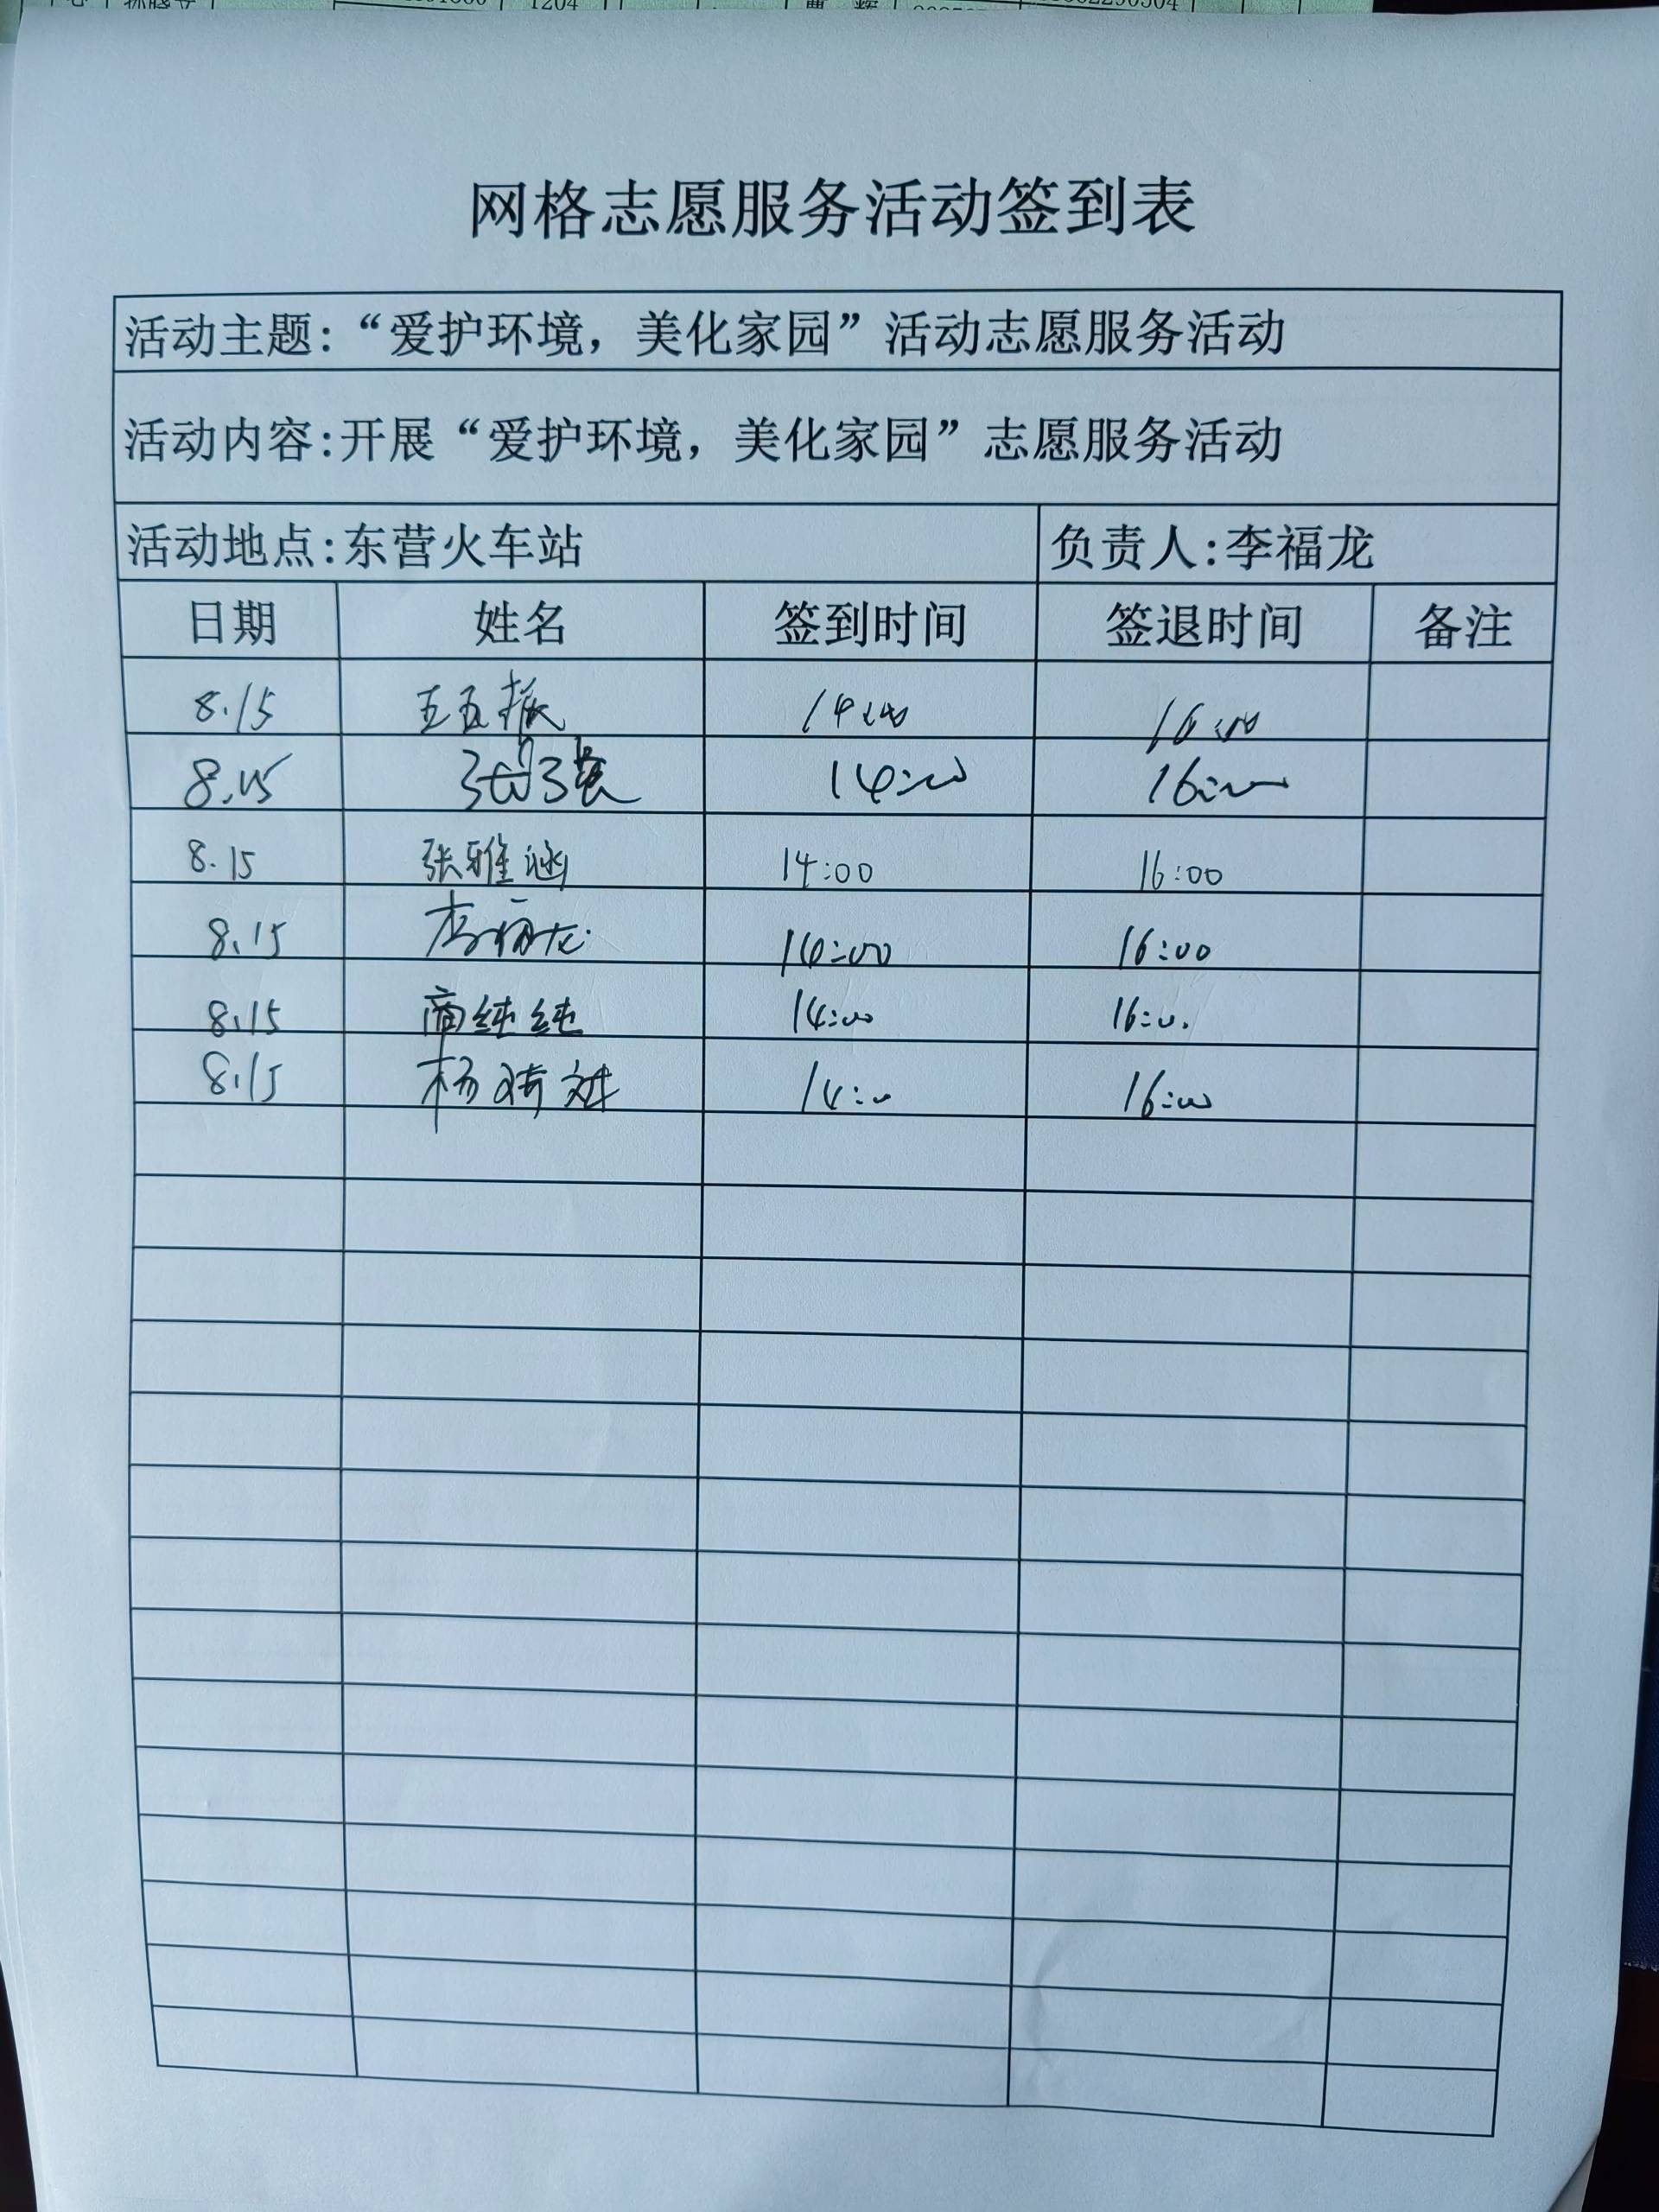 1204
网格志愿服务活动签到表
活动主题:“爱护环境，美化家园”活动志愿服务活动
活动内容:开展“爱护环境，美化家园”志愿服务活动
活动地点:东营火车站 负责人:李福龙
日期 姓名 签到时间 签退时间 备注
8.15 14:00 16:00
8.15 14:00 16:00
8.15 张雅涵 14:00 16:00
8.15 李福龙 14:00 16:00
8.15 商纯纯 14:00 16:00
8.15 杨 14:00 16:00